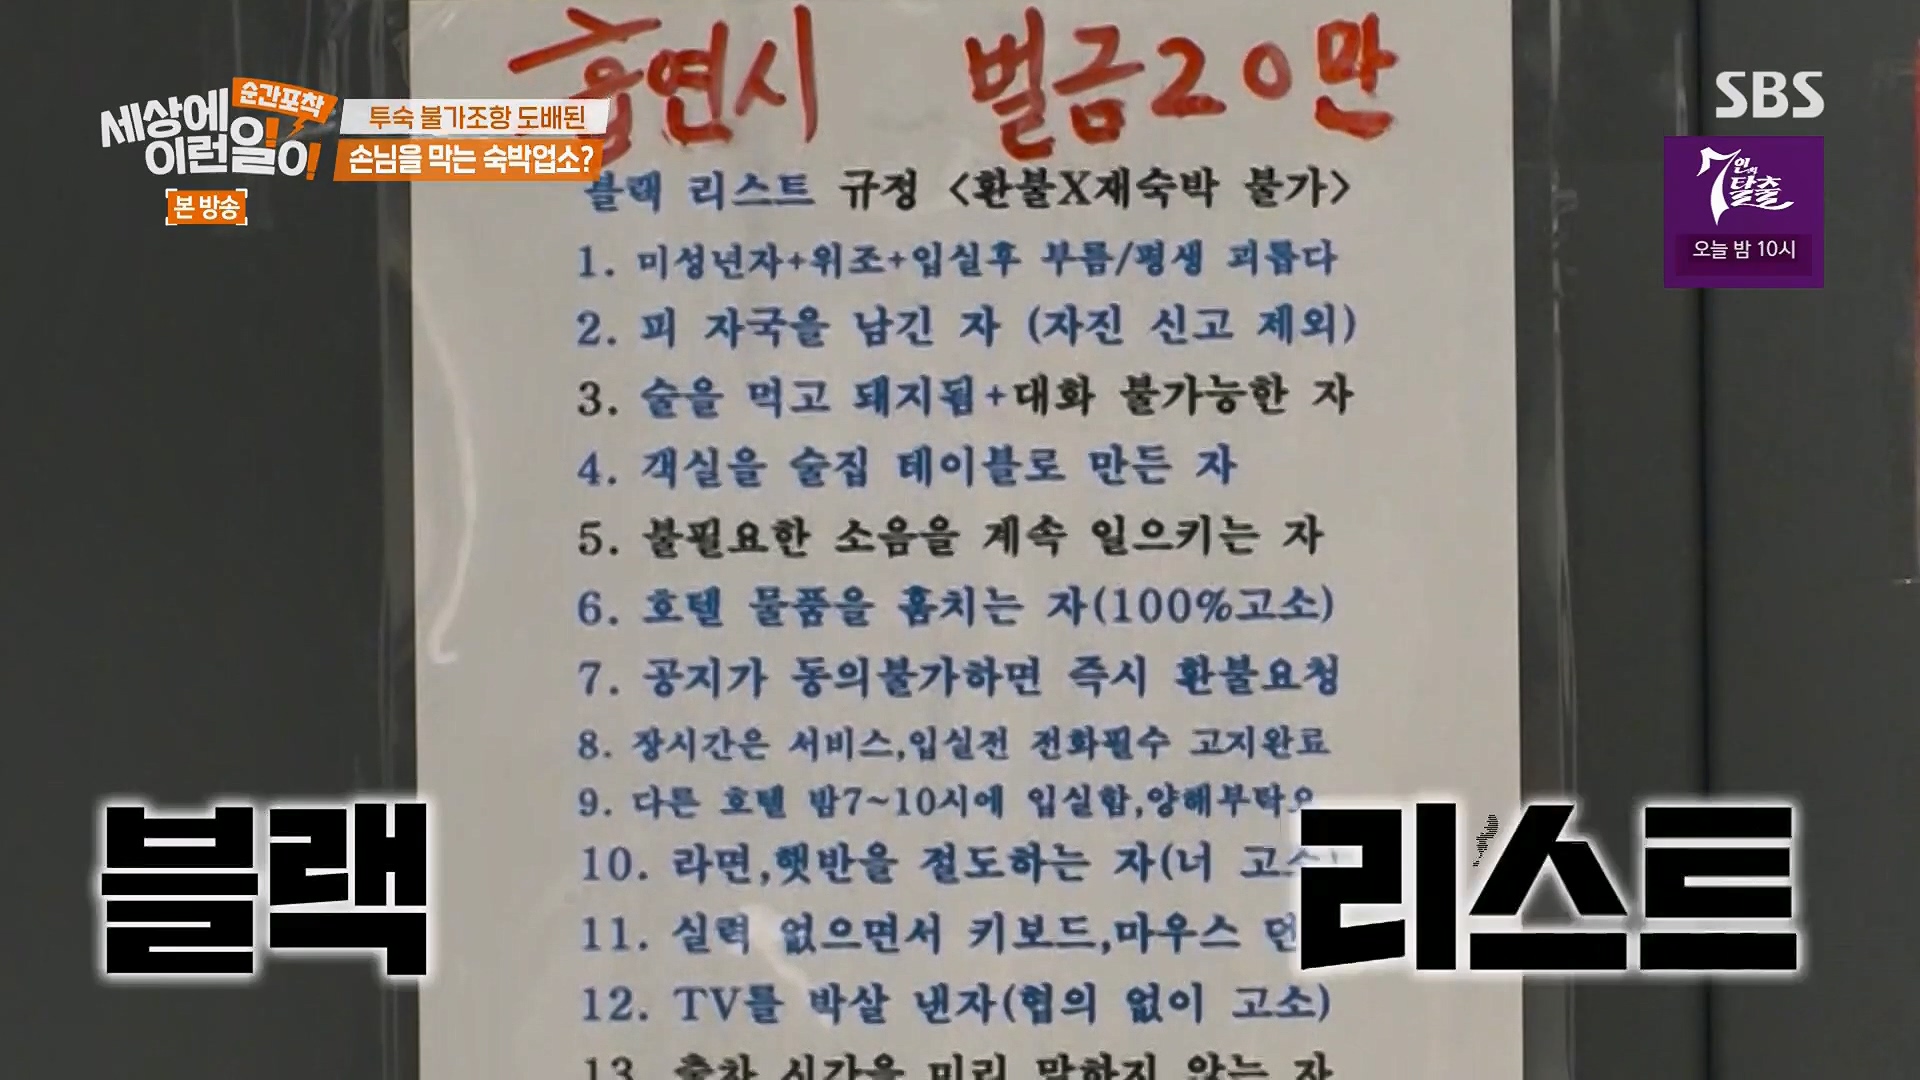 흡연시 벌금20만
SBS
순간포착
세상에
이런일이!
투숙 불가조항 도배된
손님을 막는 숙박업소?
본 방송
7인의
탈출
오늘 밤 10시
블랙 리스트 규정 <환불X재숙박 불가>
1. 미성년자+위조+입실후 부름/평생 괴롭다
2. 피 자국을 남긴 자 (자진 신고 제외)
3. 술을 먹고 돼지됨+대화 불가능한 자
4. 객실을 술집 테이블로 만든 자
5. 불필요한 소음을 계속 일으키는 자
6. 호텔 물품을 훔치는 자(100%고소)
7. 공지가 동의불가하면 즉시 환불요청
8. 장시간은 서비스,입실전 전화필수 고지완료
9. 다른 호텔 밤7~10시에 입실함,양해부탁요
10. 라면,햇반을 절도하는 자(너 고소)
11. 실력 없으면서 키보드,마우스
12. TV를 박살 낸자(협의 없이 고소)
13. 출차 시간을 미리 말하지 않는 자
블랙 리스트